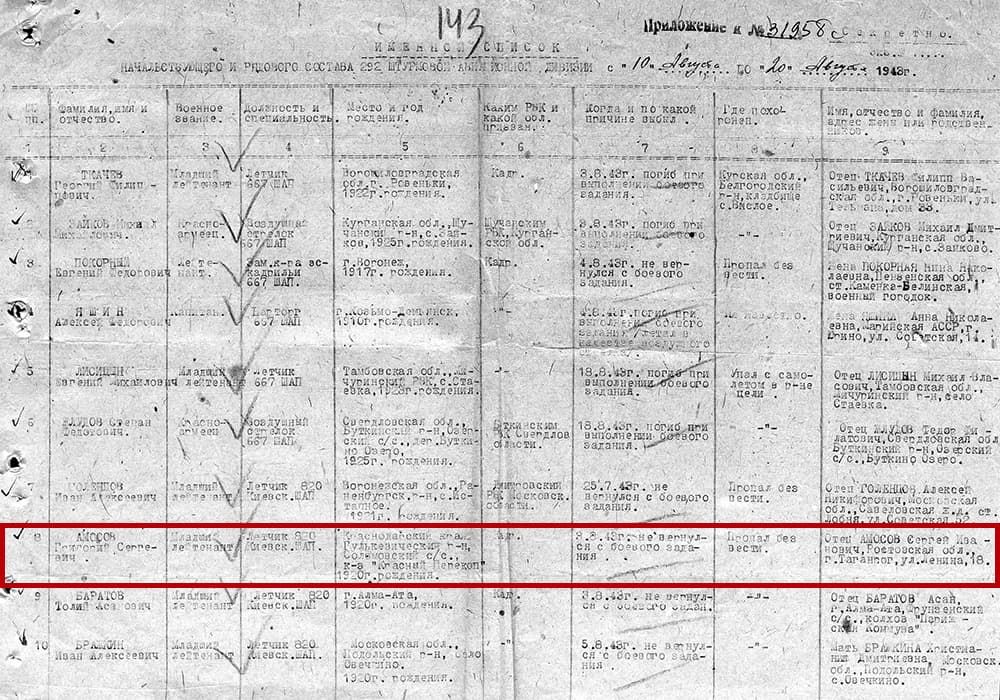 143
Приложение к № 31958с Секретно.
ИМЕННОЙ СПИСОК
НАЧАЛЬСТВУЮЩЕГО И РЯДОВОГО СОСТАВА 292 ШТУРМОВОЙ АВИАЦИОННОЙ ДИВИЗИИ с "10" Августа по "20" Август 1943г.
пп. Фамилия, имя и отчество. Военное звание. Должность и специальность. Место и год рождения. Каким РВК и какой обл. призван. Когда и по какой причине выбыл. Где похоронен. Имя, отчество и фамилия, адрес жены или родственников.
1 2 3 4 5 6 7 8 9
ТКАЧЕВ Младший Летчик Ворошиловградская Кадр. 3.8.43г. погиб при Курская обл., Отец ТКАЧЕВ Филипп Ва-
Георгий Филип- лейтенант 667 ШАП обл. г. Ровеньки, выполнении боевого Белгородский сильевич, Ворошиловград-
пович. 1922г. рождения. задания. р-н, кладбище ская обл., г. Ровеньки, ул.
с. Вислое. дом 33.
2 ЗАЙКОВ Михаил Красно- Воздушный Курганская обл., Щу- Щучанским 3.8.43г. погиб при -"- Отец ЗАЙКОВ Михаил Дмит-
Михайлович. армеец. стрелок чанский р-н, РВК, Курган- выполнении боевого риевич, Курганская обл.,
667 ШАП 1925г. рождения. ской обл. задания. Щучанский р-н, с. Зайково.
3 ПОКОРНЫЙ Лейте- Зам. к-ра эс- г. Воронеж, Кадр. 4.8.43г. не вер- Пропал без Жена ПОКОРНАЯ Нина Нико-
Евгений Федорович нант. кадрильи 1917г. рождения. нулся с боевого вести. лаевна, Пензенская обл.,
667 ШАП. задания. ст. Каменка-Белинская,
военный городок.
ЯШИН Капитан. Парторг г. Козьмо-Демьянск, -"- 4.8.43г. погиб при Анна Никола-
Алексей Федорович 667 ШАП 1910г. рождения. выполнении боевого евна, Марийская АССР, г.
задания ул. Советская, 14.
5 ЛИСИЦЫН Младший Летчик Тамбовская обл., Ми- -"- 18.8.43г. погиб при Упал с само- Отец ЛИСИЦЫН Михаил Вла-
Евгений Михайлович лейтенант 667 ШАП. чуринский РВК, с. Ста- выполнении боевого летом в р-не сович, Тамбовская обл.,
евка, 1923г. рождения. задания. цели. Мичуринский р-н, село
Стаевка.
6 Степан Красно- Воздушный Свердловская обл., Буткинским 18.8.43г. погиб при -"- Отец Федор
Федотович. армеец стрелок Буткинский р-н, Озер- РВК Свердлов выполнении боевого Свердловская обл
667 ШАП ский с/с., дер. Бутки- области. задания. Буткинский р-н, Озерский
но Озеро, с/с., Буткино Озеро.
1925г. рождения.
7 ГОЛЕНЦОВ Младший Летчик 820 Воронежская обл., Ра- Дмитровский 25.7.43г. не Пропал без Отец ГОЛЕНЦОВ Алексей
Иван Алексеевич лейтенант Киевск. ШАП. ненбургск. р-н, РВК, Московск. вернулся с боевого вести. Никифорович, Московская
области. задания. обл., Савеловская ж.д. ст.
1921г. рождения. Лобня, ул. Советская 52
8 АМОСОВ Младший Летчик 820 Краснодарский край, Кадр. 3.8.43г. не вернул- Пропал без Отец АМОСОВ Сергей Ива-
Григорий Серге- лейтенант Киевск. ШАП. Гулькевический р-н, ся с боевого зада- вести. нович, Ростовская обл.,
евич. с/с., ния г. Таганрог, ул. Ленина, 18.
к-з "Красный Перекоп"
1920г. рождения.
9 БАРАТОВ Младший Летчик 820 г. Алма-Ата, Кадр. 3.8.43г. не вернул- -"- Отец БАРАТОВ Асай,
Толий Асатович лейтенант Киевск. ШАП. 1920г. рождения. ся с боевого задан. г. Алма-Ата, Фрунзенский
с/с., колхоз "Париж-
ская Коммуна".
10 БРАЖКИН Младший Летчик 820 Московская обл., -"- 5.8.43г. не вернул- -"- Мать БРАЖКИНА Христиа-
Иван Алексеевич лейтенант Киевск. ШАП. Подольский р-н, село ся с боевого зада- Дмитриевна, Московск.
Овечкино. ния. обл., Подольский р-н,
1920г. рождения. с. Овечкино.